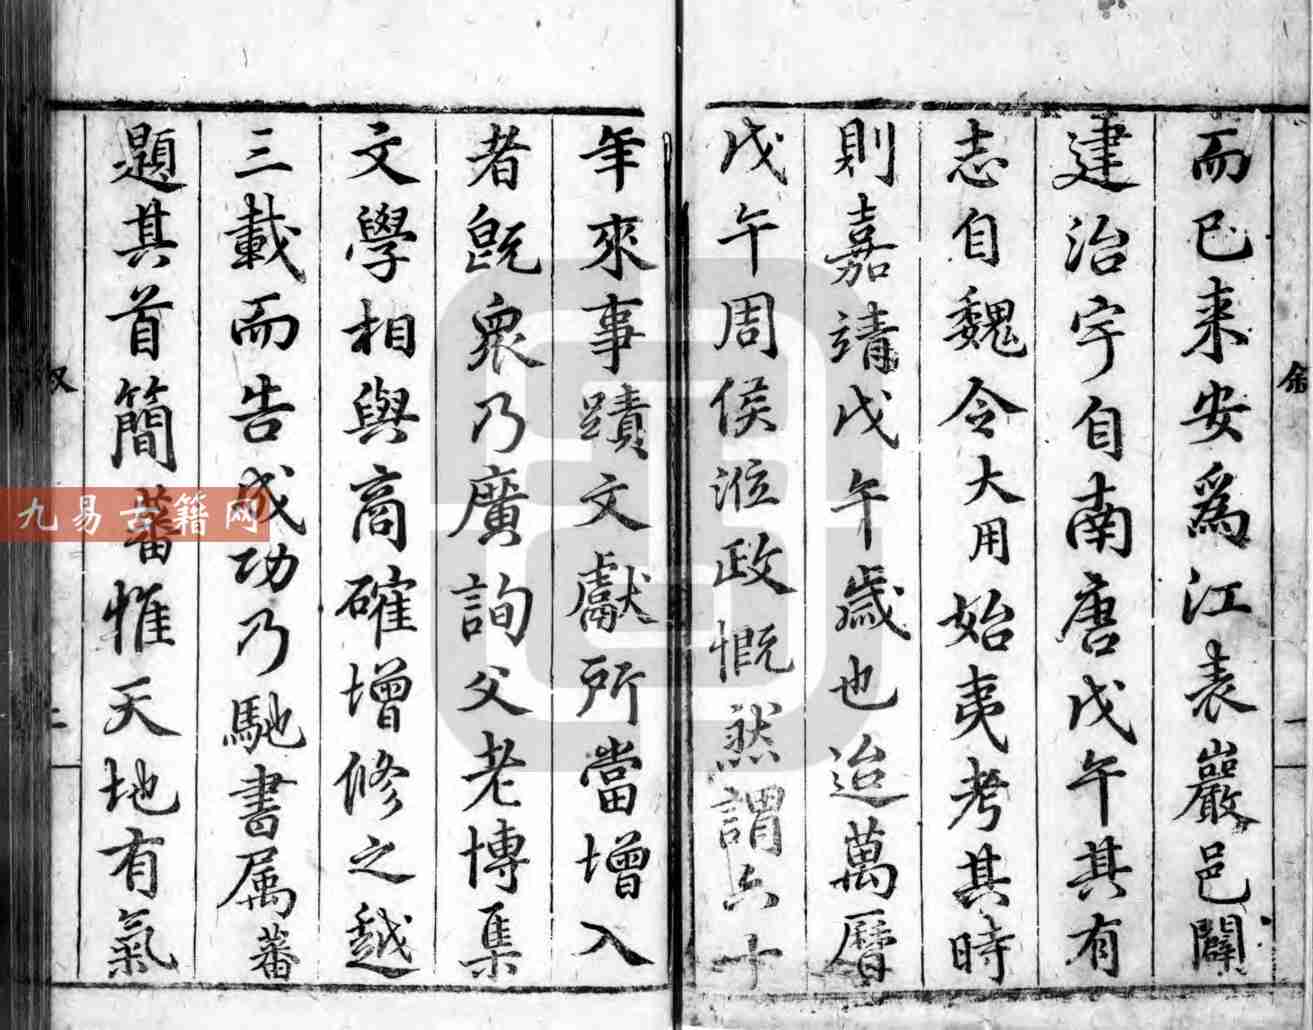 而已来安為江表巖邑闢
建治宇自南唐戊午其有
志自魏令大用始夷考其時
則嘉靖戊午歲也迨萬曆
戊午周侯涖政慨然謂六十
年來事蹟文獻所當增入
者旣衆乃廣詢父老博集
文學相與商確增修之越
三載而告成功乃馳書属蕃
題其首簡蕃惟天地有氣
九易古籍网